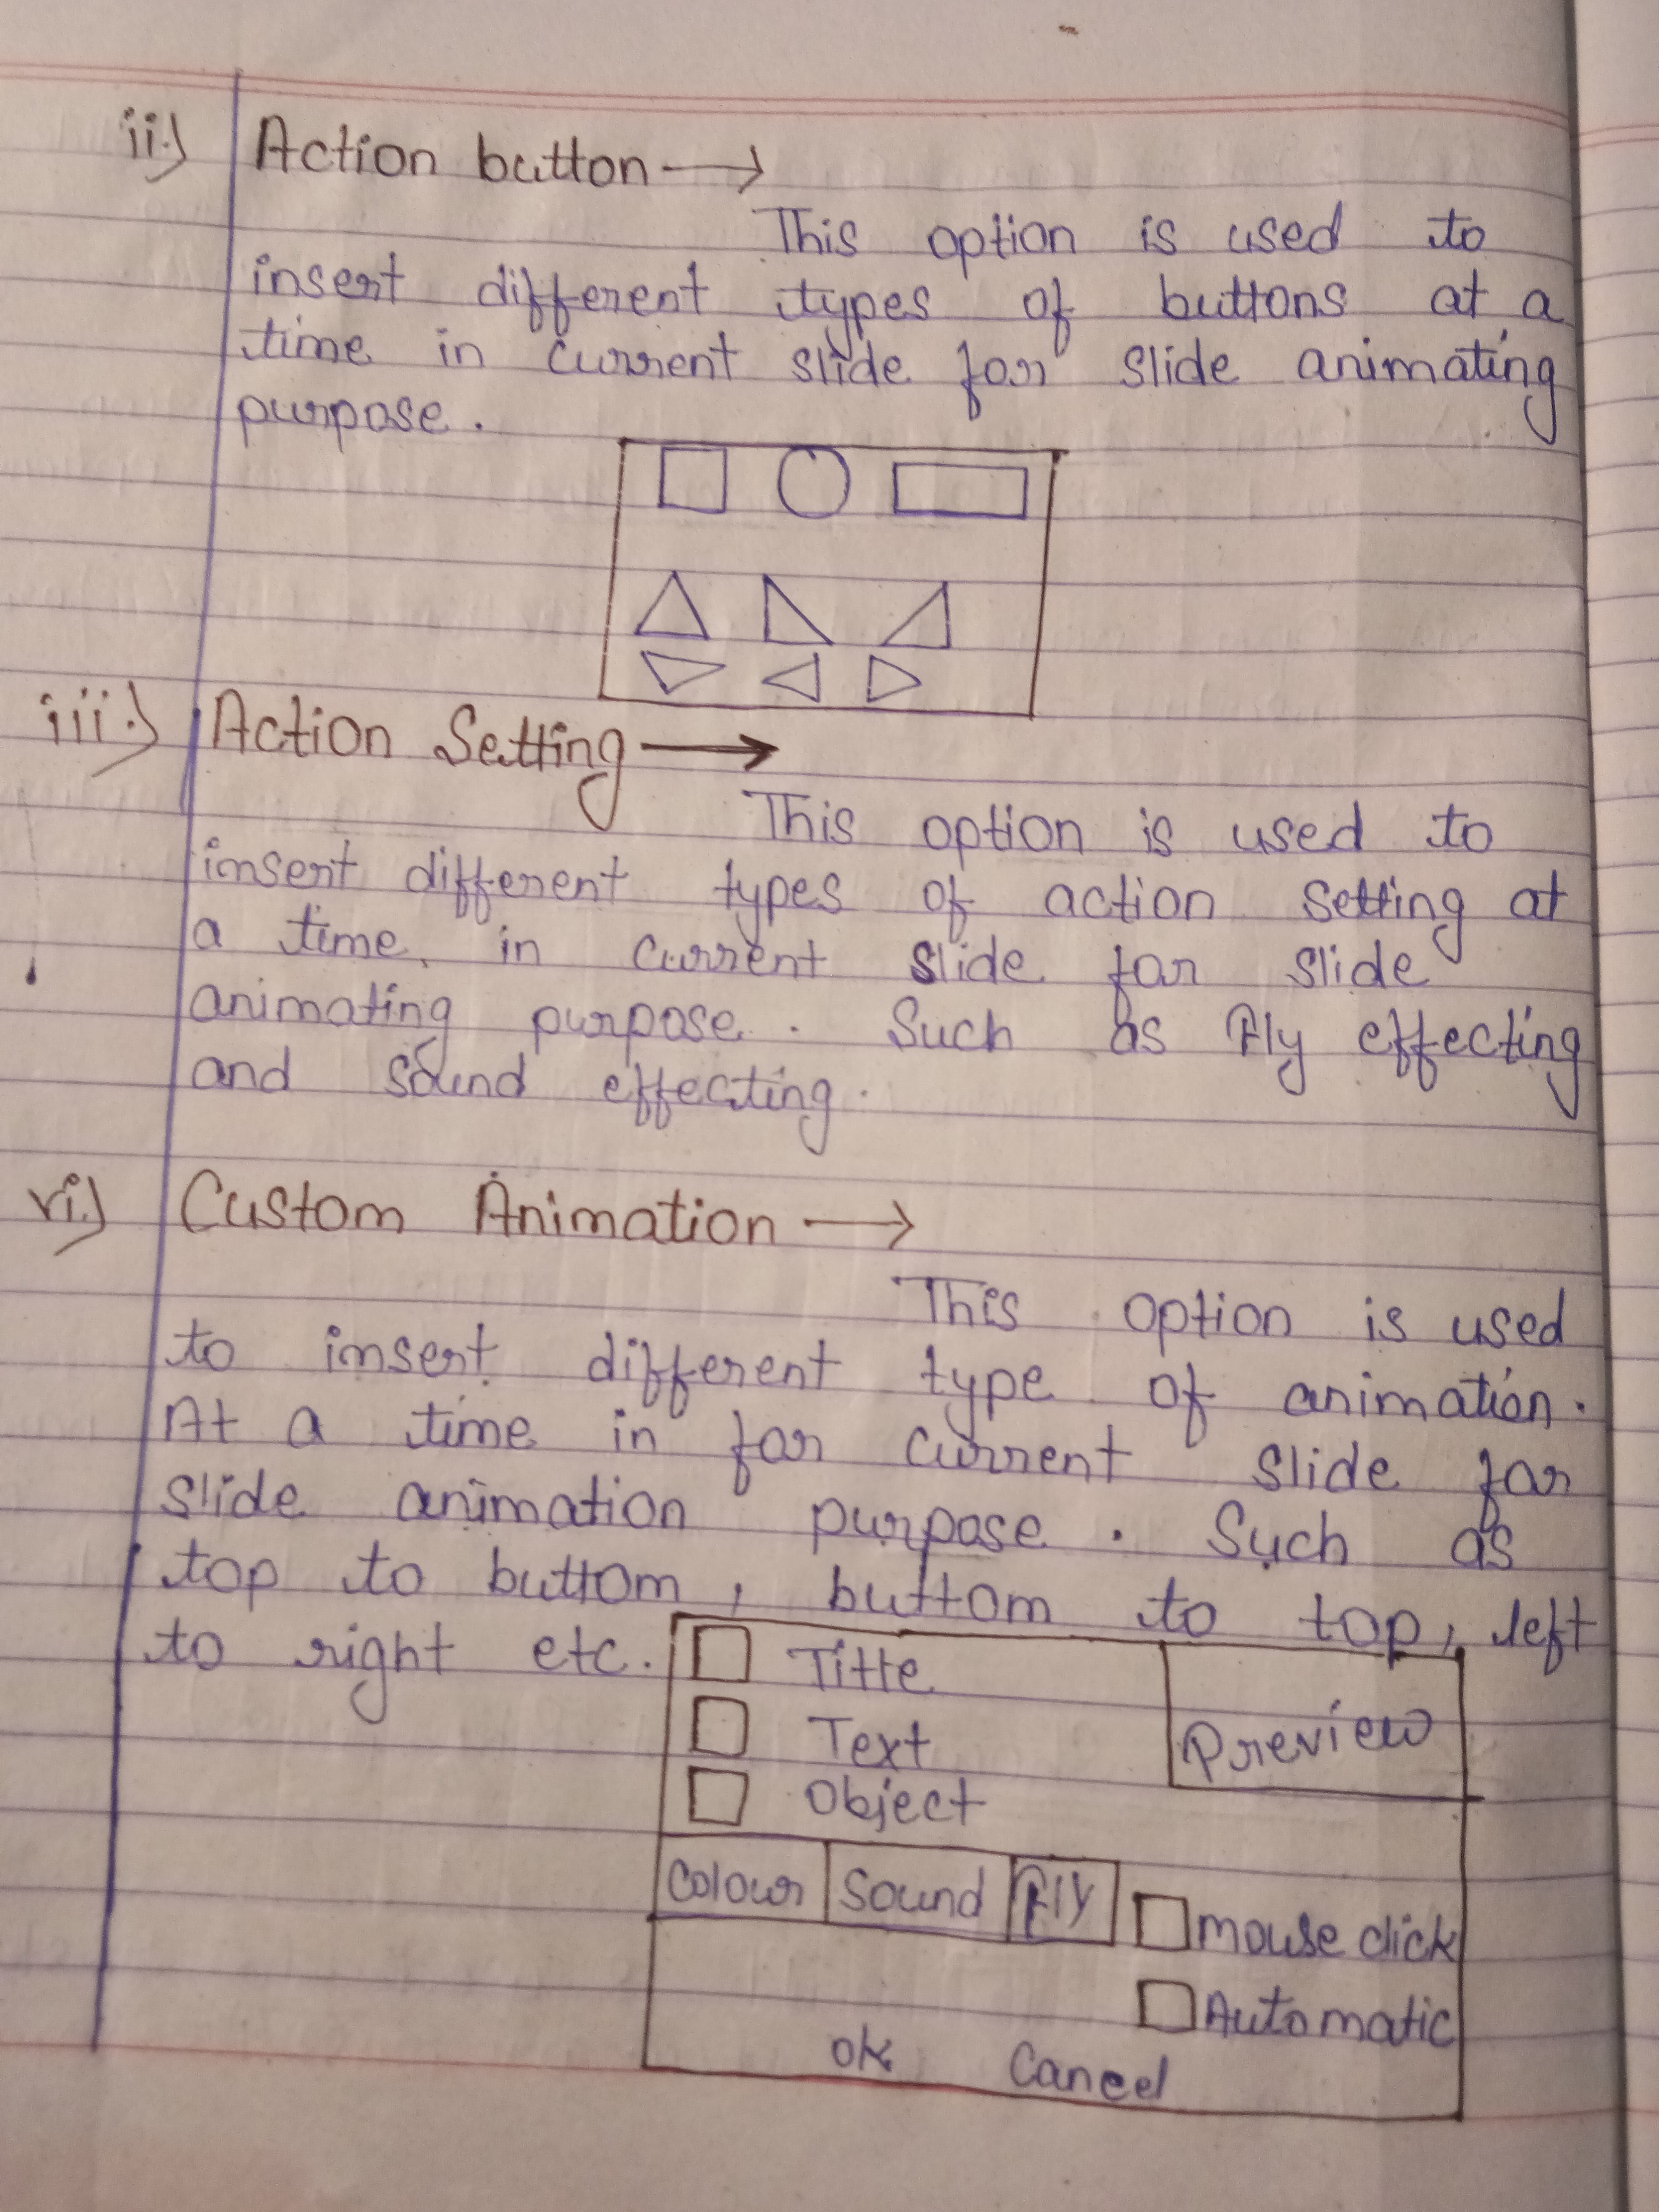 ii.) Action button →
This option is used to
insert different types of buttons at a
time in current slide for slide animating
purpose.
iii.) Action Setting →
This option is used to
insert different types of action setting at
a time in current slide for slide
animating purpose. Such as Fly effecting
and sound effecting.
vi.) Custom Animation →
This option is used
to insert different type of animation.
At a time in for current slide for
slide animation purpose. Such as
top to buttom, buttom to top, left
to right etc.
Title
Text
Preview
Object
Colour Sound Fly
mouse click
Automatic
ok Cancel